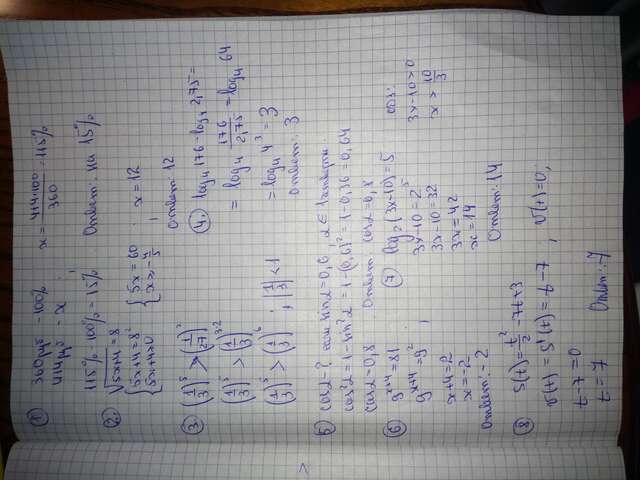 ① 360 руб - 100%
414 руб - x ; x = 414·100/360 = 115%
115% - 100% = 15% Ответ: на 15%
② √(5x+4) = 8
{5x+4 = 8² {5x = 60
{5x+4>0 {x ≥ -4/5 ; x = 12
Ответ: 12
③ (1/3)⁵ > (1/27)²
(1/3)⁵ > (1/3)³·²
(1/3)⁵ > (1/3)⁶ ; |1/3| < 1
④ log₄ 176 - log₄ 2,75 =
= log₄ 176/2,75 = log₄ 64
= log₄ 4³ = 3
Ответ: 3
⑤ cos α - ? если sin α = 0,6 , α ∈ 1 четверти.
cos² α = 1 - sin² α = 1 - (0,6)² = 1 - 0,36 = 0,64
cos α = 0,8 Ответ: cos α = 0,8
⑥ 9ˣ⁺⁴ = 81
9ˣ⁺⁴ = 9² ;
x+4 = 2
x = -2
Ответ: -2
⑦ log₂ (3x-10) = 5 ОДЗ:
3x-10 = 2⁵ 3x-10 > 0
3x-10 = 32 x > 10/3
3x = 42
x = 14
Ответ: 14
⑧ S(t) = t²/2 - 7t + 3
v(t) = S'(t) = t - 7 ; v(t) = 0;
t - 7 = 0
t = 7 Ответ: 7